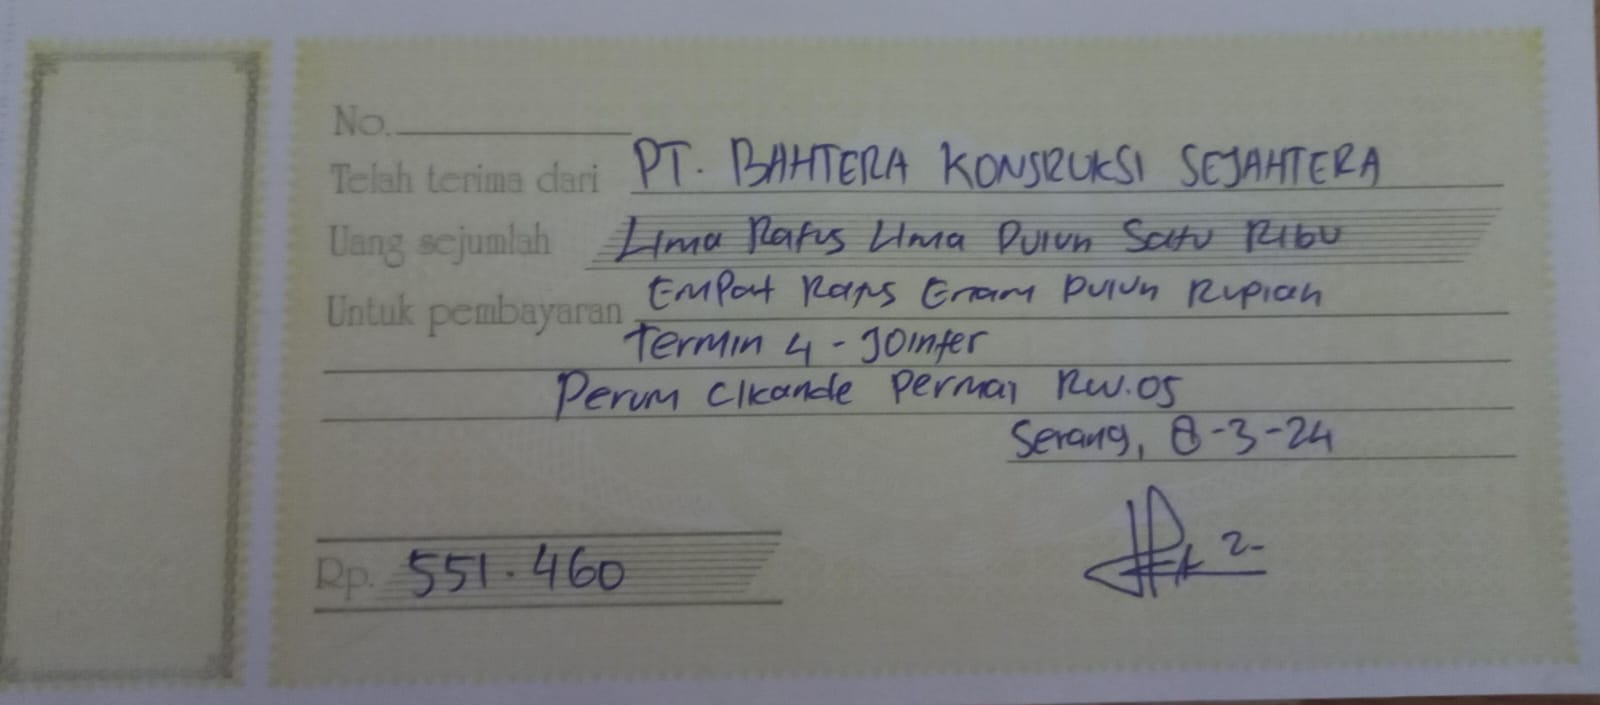 No.
Telah terima dari PT. BAHTERA KONSRUKSI SEJAHTERA
Uang sejumlah Lima Ratus Lima Puluh Satu Ribu
Untuk pembayaran Empat Ratus Enam Puluh Rupiah
Termin 4 - Jointer
Perum Cikande Permai RW.05
Serang, 8-3-24
Rp. 551.460